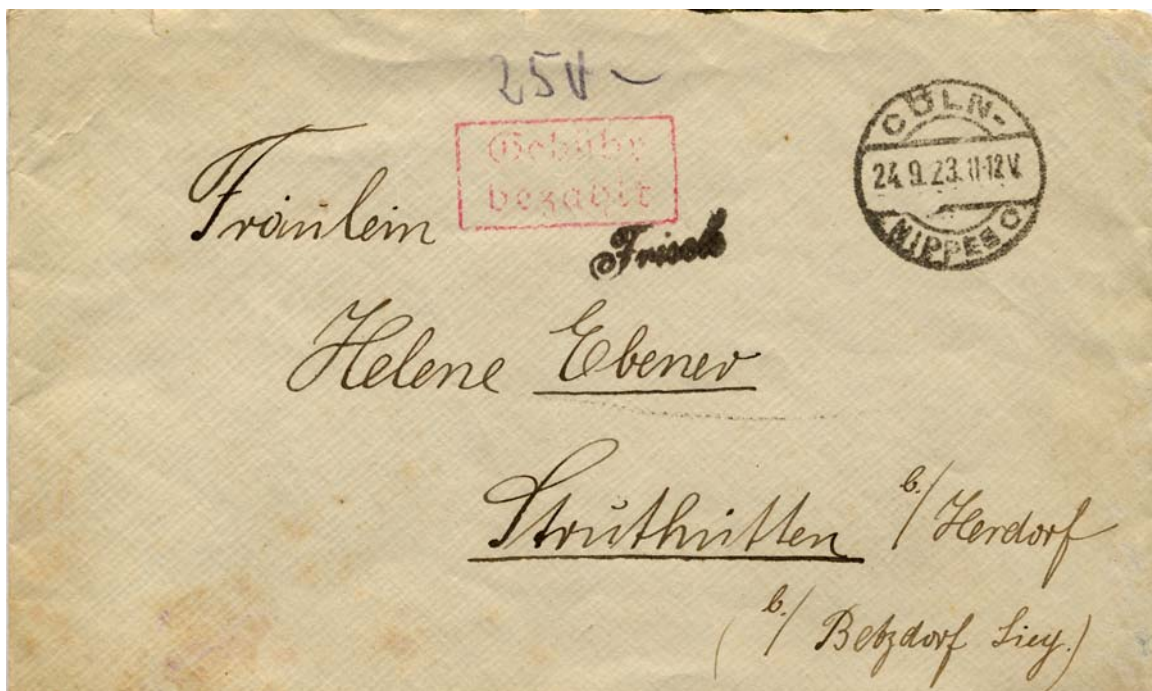 Gebühr
bezahlt
Frisch
CÖLN-
24.9.23.11-12V.
NIPPES
Fräulein
Helene Ebener
Struthütten b./Herdorf
(b./ Betzdorf Sieg.)